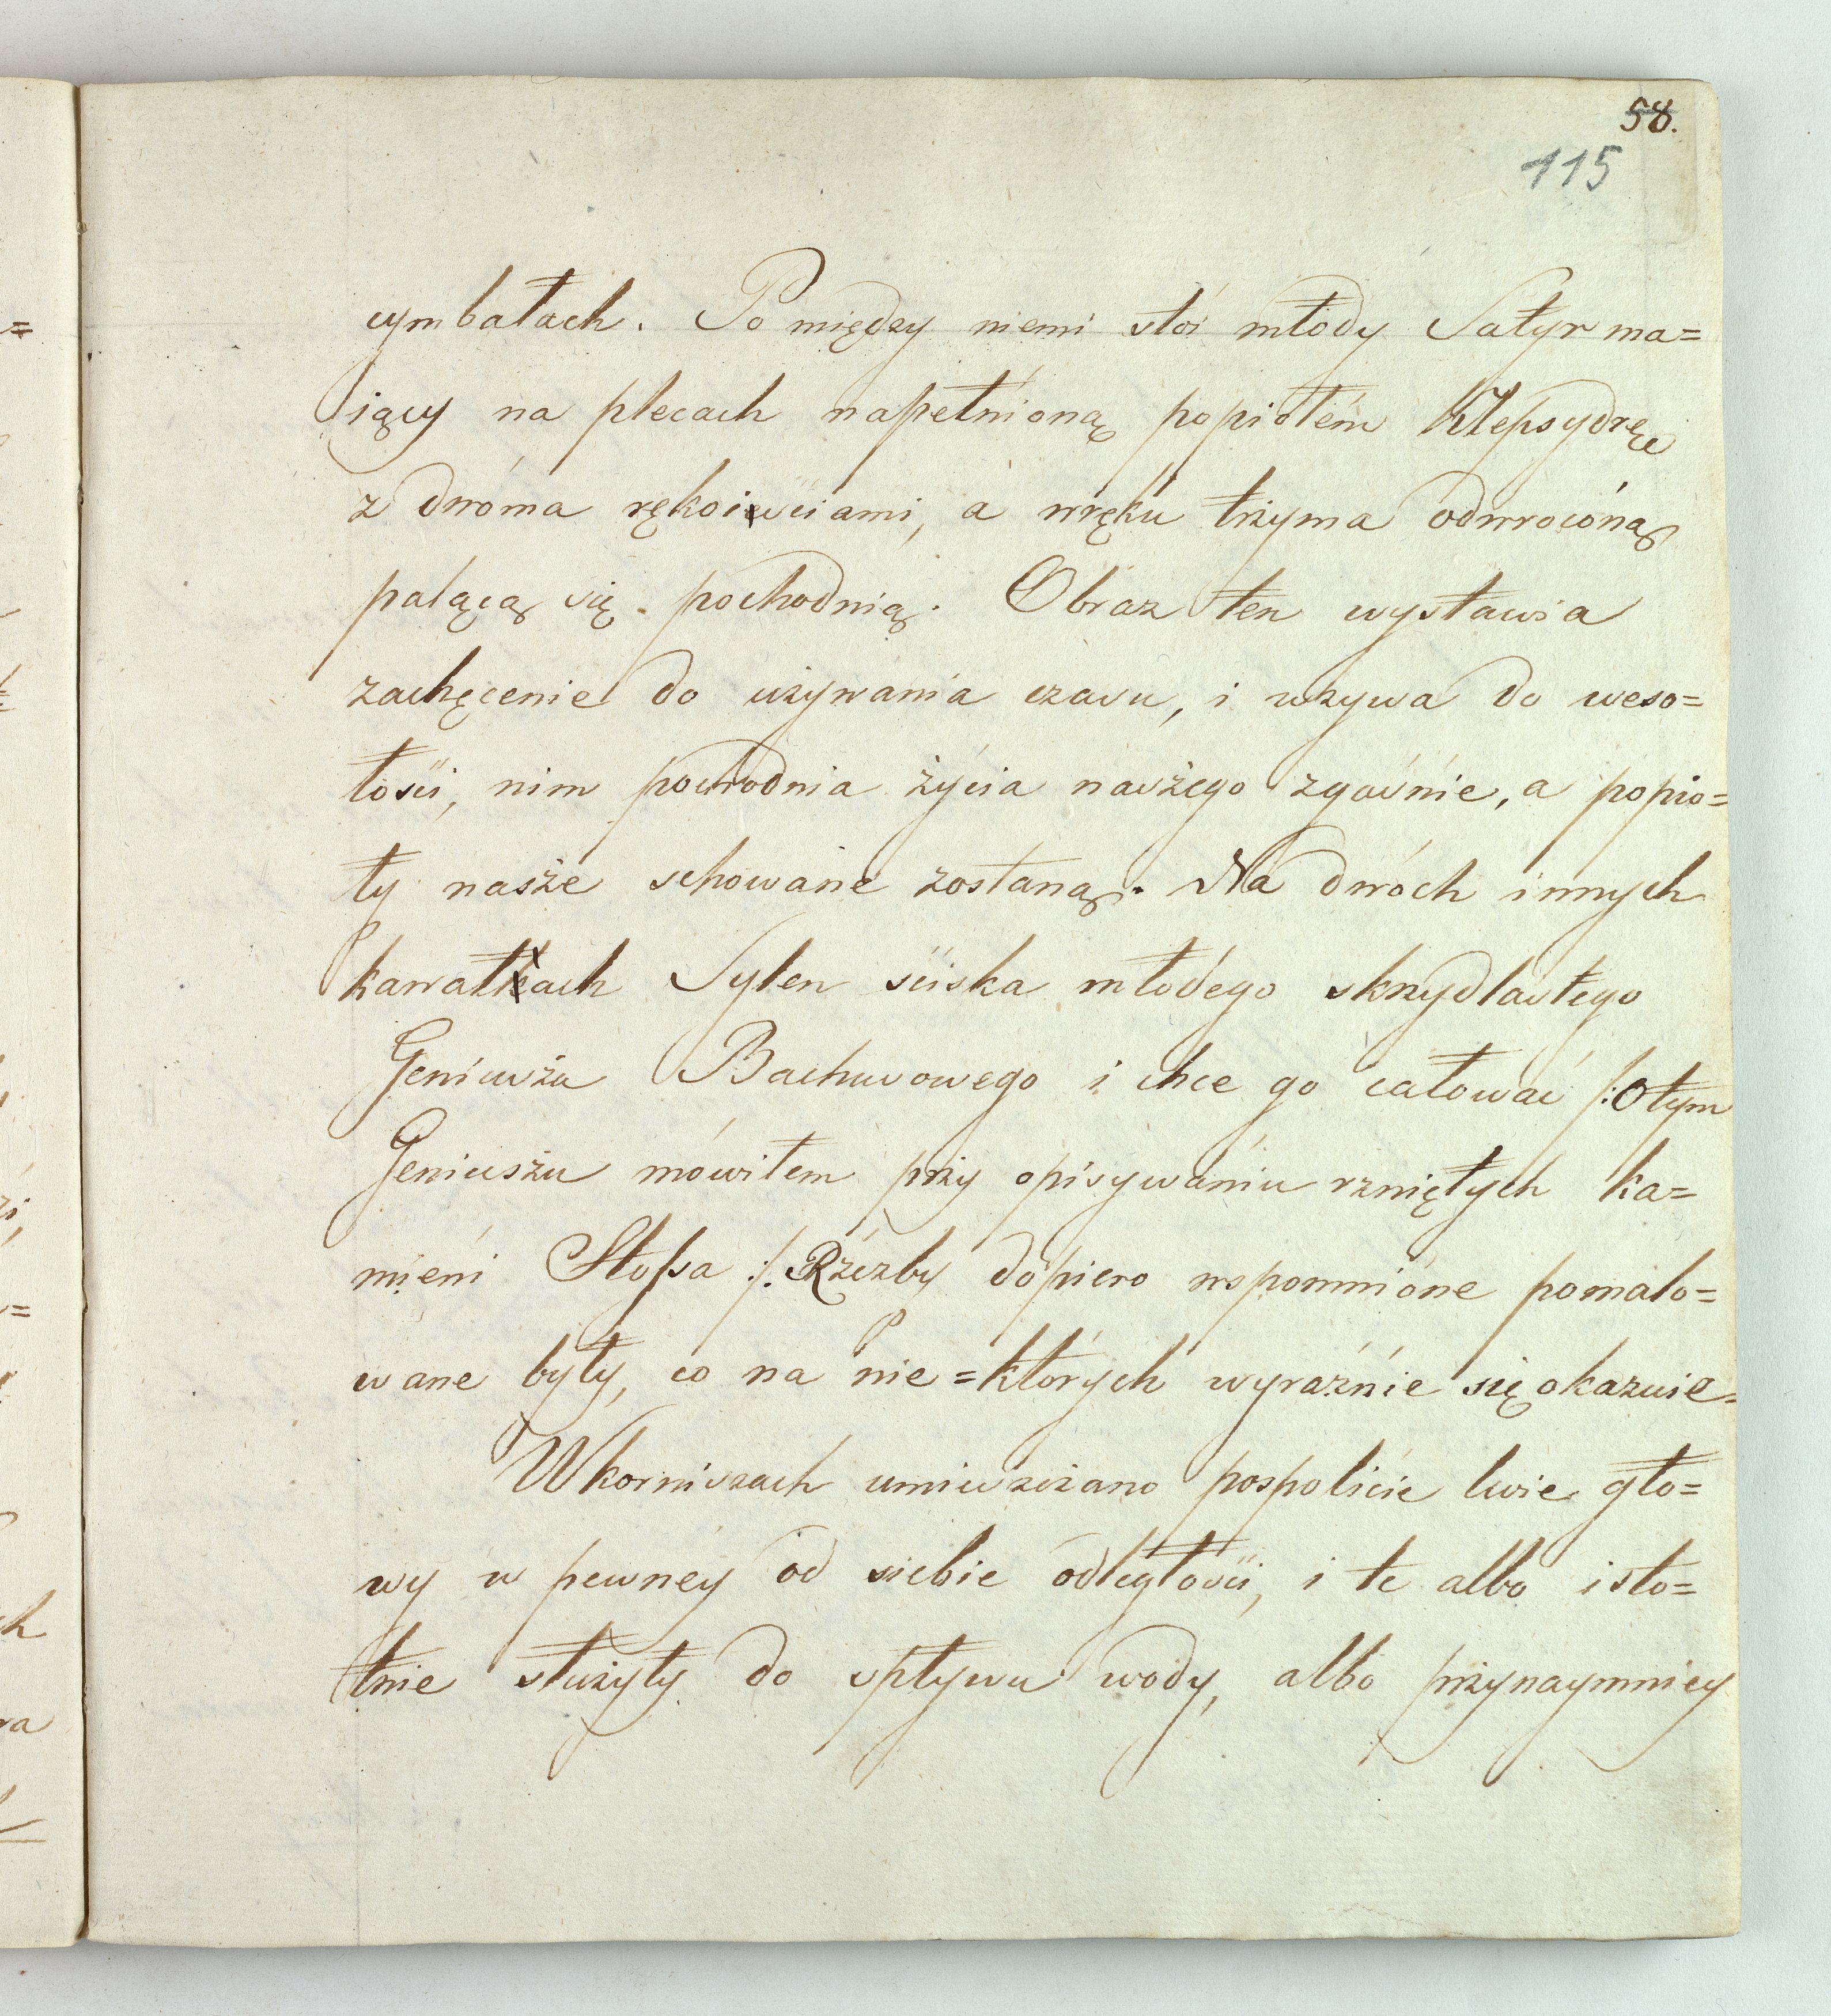 58.
115
cymbałach. Po między niemi stói młody Satyr ma=
iący na plecach napełnioną popiołem Klepsydrę
z dwóma rękoiściami, a wręku trzyma odwroconą
palącą się pochodnią. Obraz ten wystawia
zachęcenie do używania czasu, i wzywa do weso=
łości, nim pochodnia życia naszego zgaśnie, a popio=
ły nasze schowane zostaną. Na dwóch innych
kawałkach Sylen sciska młodego skrzydlastego
Geniusza Bachusowego i chce go całować /: O tym
Geniuszu mówiłem przy opisywaniu rzniętych ka=
mieni Stoßa :/. Rzézby dopiero wspomnióne pomalo=
wane były, co na nie=których wyraźnie się okazuie.
Wkorniszach umieszczano pospolicie lwie gło=
wy w pewnéy od siebie odległości, i te albo isto=
tnie służyły do spływu wody, albo przynaymniey